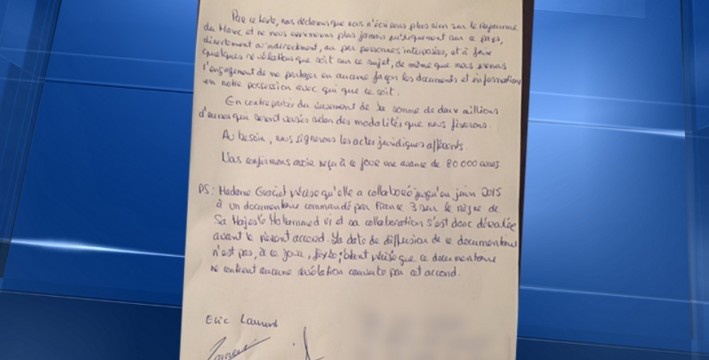 Par ce texte, nous déclarons que nous n'écrirons plus rien sur le Royaume
du Maroc et ne nous exprimerons plus jamais publiquement sur ce pays,
directement ou indirectement, ou par personnes interposées, et à faire
quelques révélations que soit sur ce sujet, de même que nous prenons
l'engagement de ne partager en aucune façon les documents et informations
en notre possession avec qui que ce soit.
En contrepartie du versement de la somme de deux millions
d'euros qui seront versés selon des modalités que nous fixerons.
Au besoin, nous signerons les actes juridiques afférents
Nous confirmons avoir reçu à ce jour une avance de 80 000 euros.
PS: Madame Graciet précise qu'elle a collaboré jusqu'en juin 2015
à un documentaire commandé par France 3 sur le règne de
Sa Majesté Mohammed VI et sa collaboration s'est donc déroulée
avant le présent accord. La date de diffusion de ce documentaire
n'est pas, à ce jour, fixée; étant précisé que ce documentaire
ne contient aucune révélation couverte par cet accord.
Eric Laurent